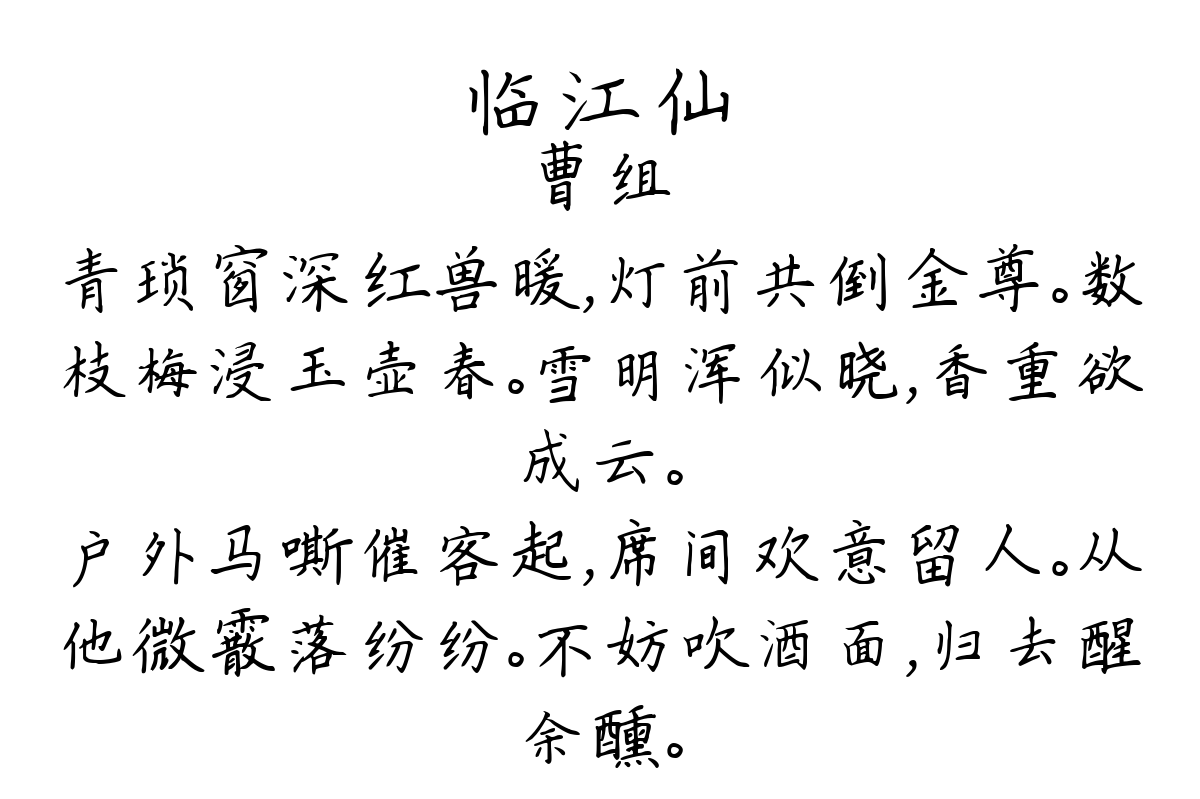 临江仙
曹组
青琐窗深红兽暖,灯前共倒金尊。数
枝梅浸玉壶春。雪明浑似晓,香重欲
成云。
户外马嘶催客起,席间欢意留人。从
他微霰落纷纷。不妨吹酒面,归去醒
余醺。